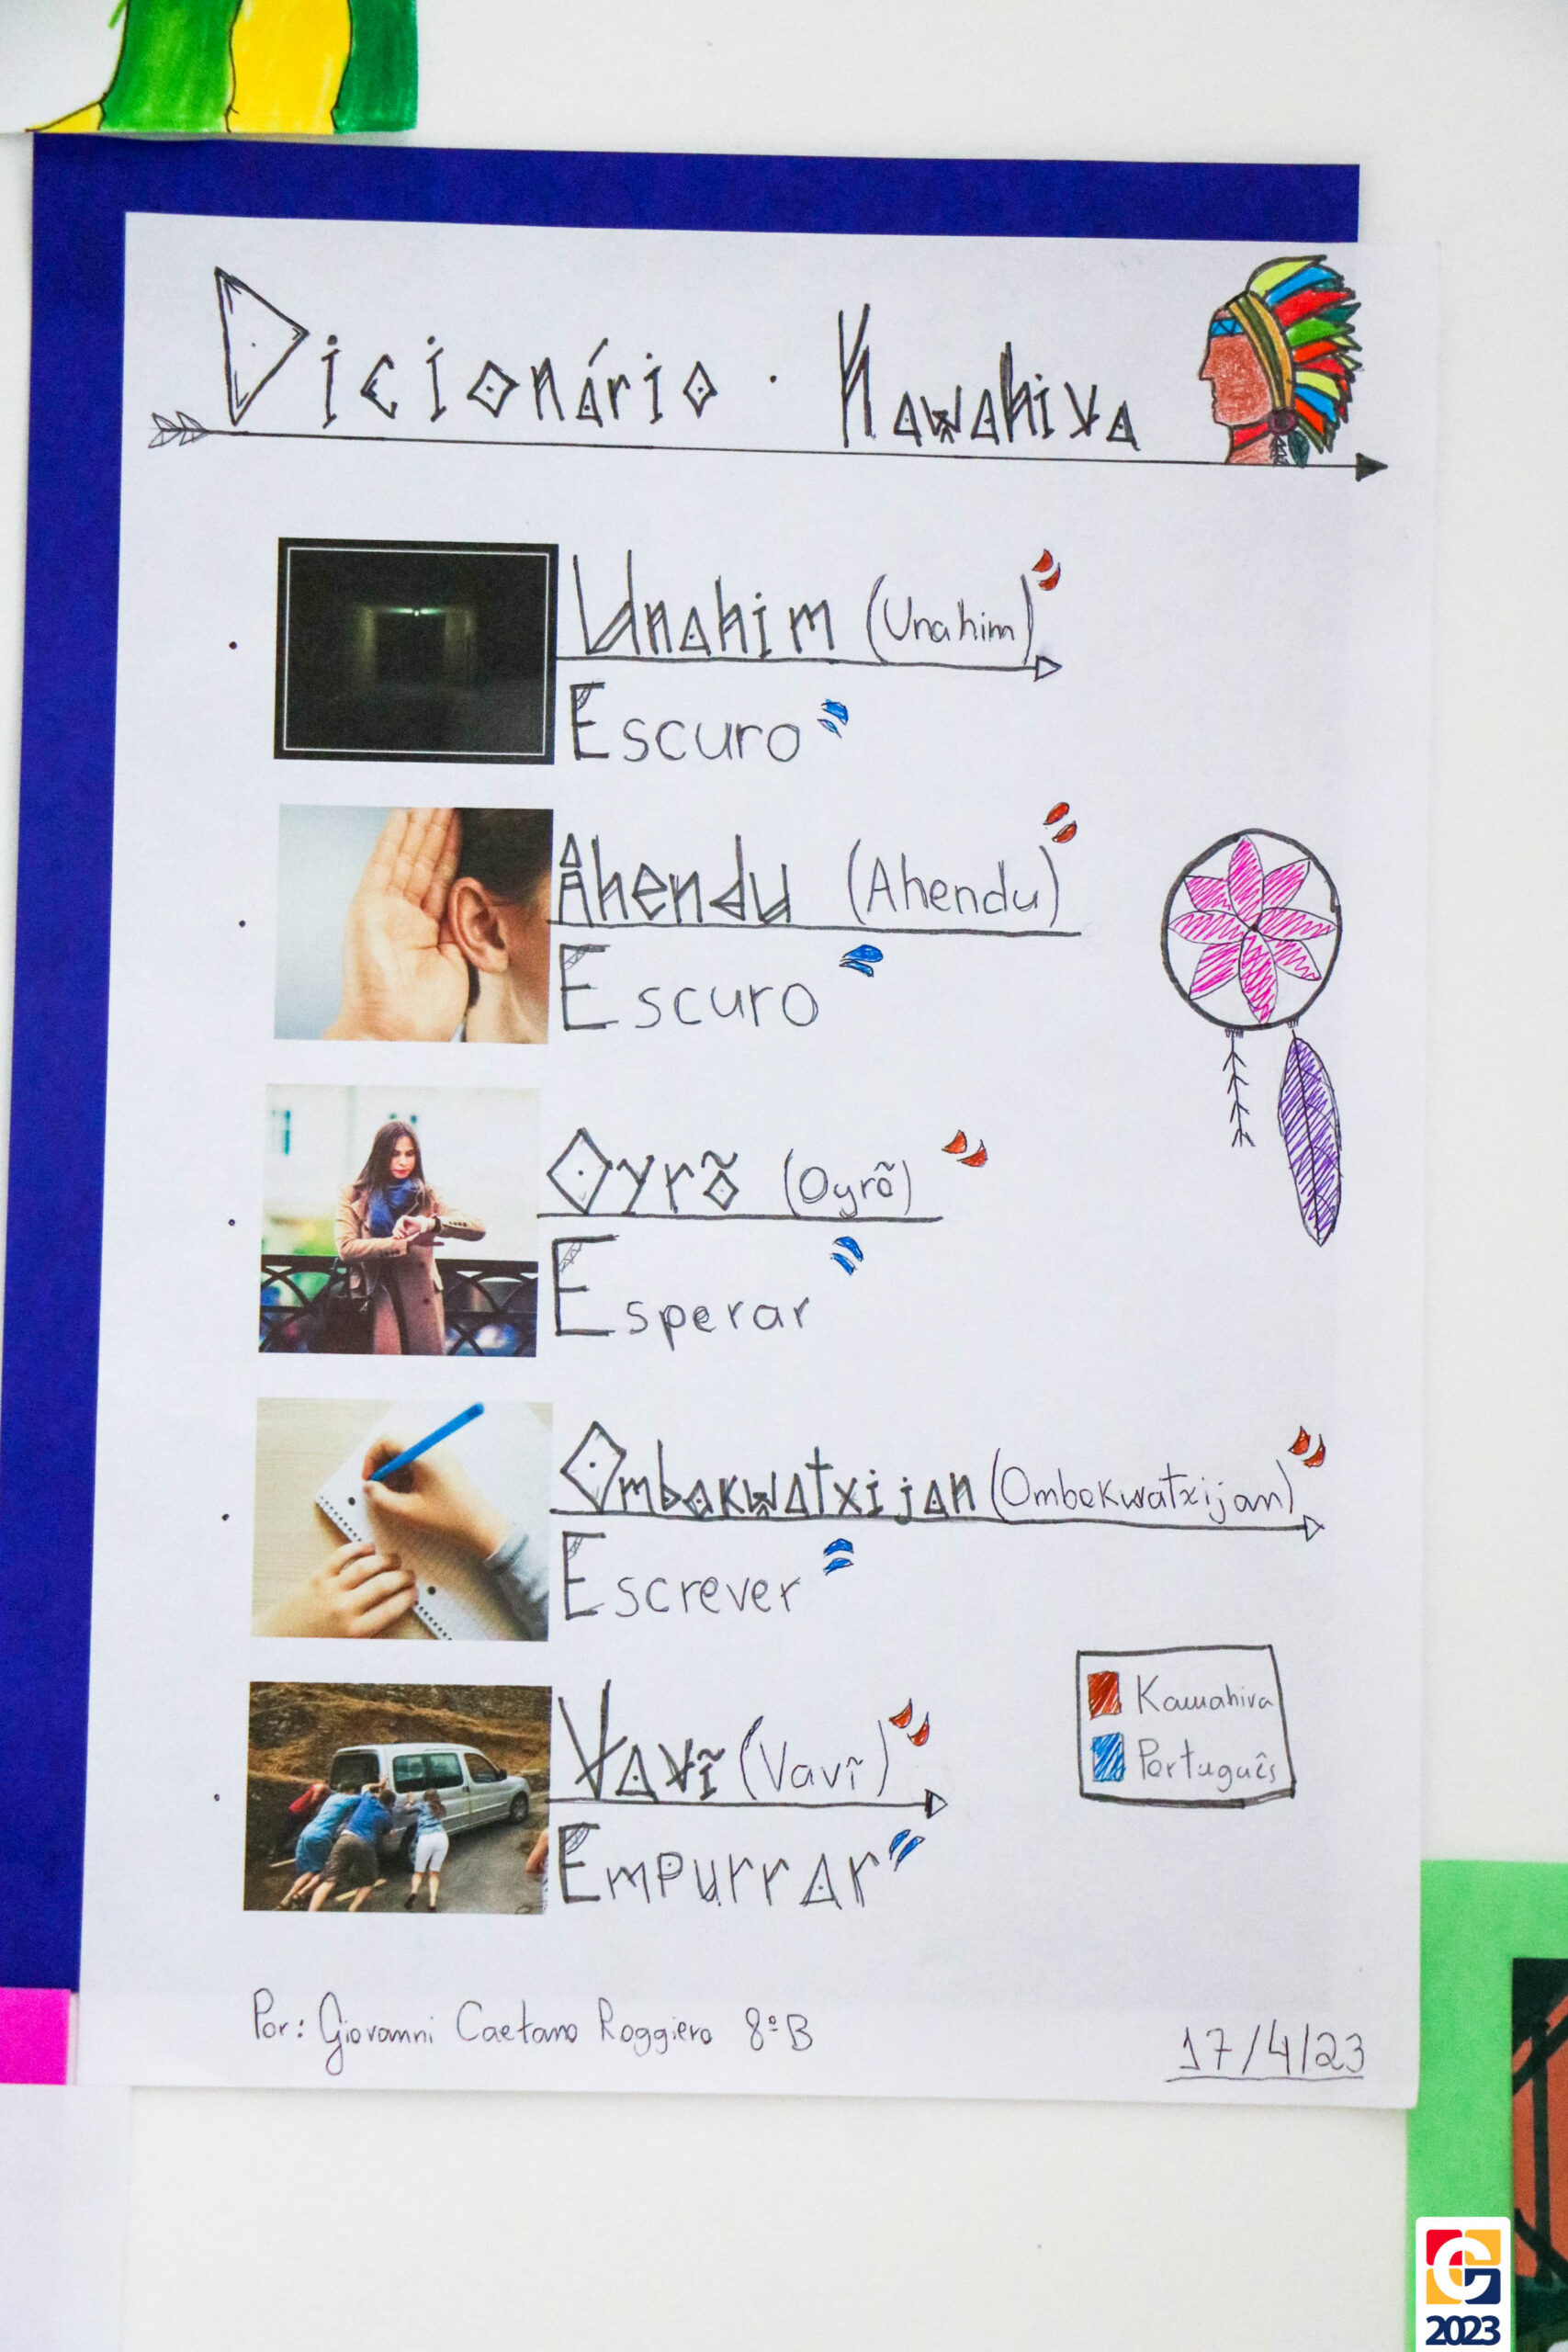 Dicionário · Kawahiva
Unahim (Unahim)
Escuro
Ahendu (Ahendu)
Escuro
Oyrõ (Oyrõ)
Esperar
Ombakwatxijan (Ombakwatxijan)
Escrever
Vavĩ (Vavĩ)
Empurrar
Kawahiva
Português
Por: Giovanni Caetano Roggiero 8ºB
17/4/23
2023